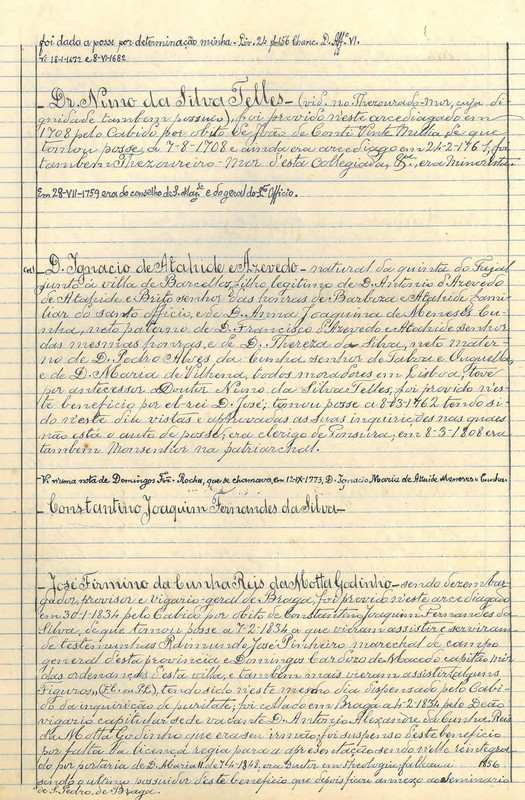 foi dado a posse por determinação minha. Liv. 24 fol 156 Chanc. D. Aff.º VI.
Vi 18-1-1672 e 8-VI-1682
- Dr. Nuno da Silva Telles - (vid. no Thezourado-mor, cuja di-
gnidade tambem possuio), foi provido neste arcediagado em
1708 pelo Cabido por obito de João de Conte Vente Milha, de que
tomou posse, a 7-8-1708 e ainda era arcediago em 24-2-1761, foi
tambem Thezoureiro-Mor d'esta Collegiada, era Minorista.
Em 28-VII-1759 era do conselho de S. Mag.de e do geral do S.to Officio.
- D. Ignacio de Atahide e Azevedo - natural da quinta do Fayal
junto á villa de Barcellos, filho legitimo de D. Antonio d'Azevedo
de Atahide e Brito senhor das honras de Barboza e Atahide fami-
liar do santo officio, e de D. Anna Joaquina de Meneses Cu-
nha, neto paterno de D. Francisco d'Azevedo e Atahide senhor
das mesmas honras, e de D. Thereza da Silva, neto mater-
no de D. Pedro Alves da Cunha senhor de Taboa e Ouguella,
e de D. Maria de Vilhena, todos moradores em Lisboa, teve
por antecessor o Doutor Nuno da Silva Telles, foi provido n'es-
te beneficio por el-rei D. José; tomou posse a 8-3-1762 tendo si-
do n'este dia vistas e approvadas as suas inquirições nas quais
não está o auto de posse; era clerigo de Tonsura, em 8-3-1808 era
tambem Monsenhor na patriarchal.
Vi n'uma nota de Domingos Fr.z Rocha, que se chamava, em 12-IX-1773, D. Ignacio Maria de Attaide Meneses e Cunha.
- Constantino Joaquim Fernandes da Silva -
- José Firmino da Cunha Reis da Motta Godinho - sendo dezembar-
gador, provisor e vigario-geral de Braga, foi provido n'este arcediagado
em 30-1-1834 pelo Cabido por obito de Constantino Joaquim Fernandes da
Silva, de que tomou posse a 7-2-1834 a que vieram assistir e serviram
de testemunhas Raimundo José Pinheiro marechal de campo
general d'esta provincia e Domingos Cardozo de Macedo capitão mór
das ordenanças d'esta villa, e tambem mais vieram assistir
Figuros,, tendo sido neste mesmo dia dispensado pelo Cabi-
do da inquirição de puritate; foi collado em Braga a 4-2-1834 pelo Deão
vigario capitular sede vacante D. Antonio Alexandre da Cunha Reis
da Motta Godinho que era seu irmão; foi suspenso d'este beneficio
por falta da licença regia para a apresentação sendo n'elle reintegra-
do por portaria de D. Maria II. de 7-4-1848, era doutor em theologia; falleceu a 1856
sendo o ultimo possuidor d'este beneficio que depois ficou annexo ao Seminario
de S. Pedro, de Braga.